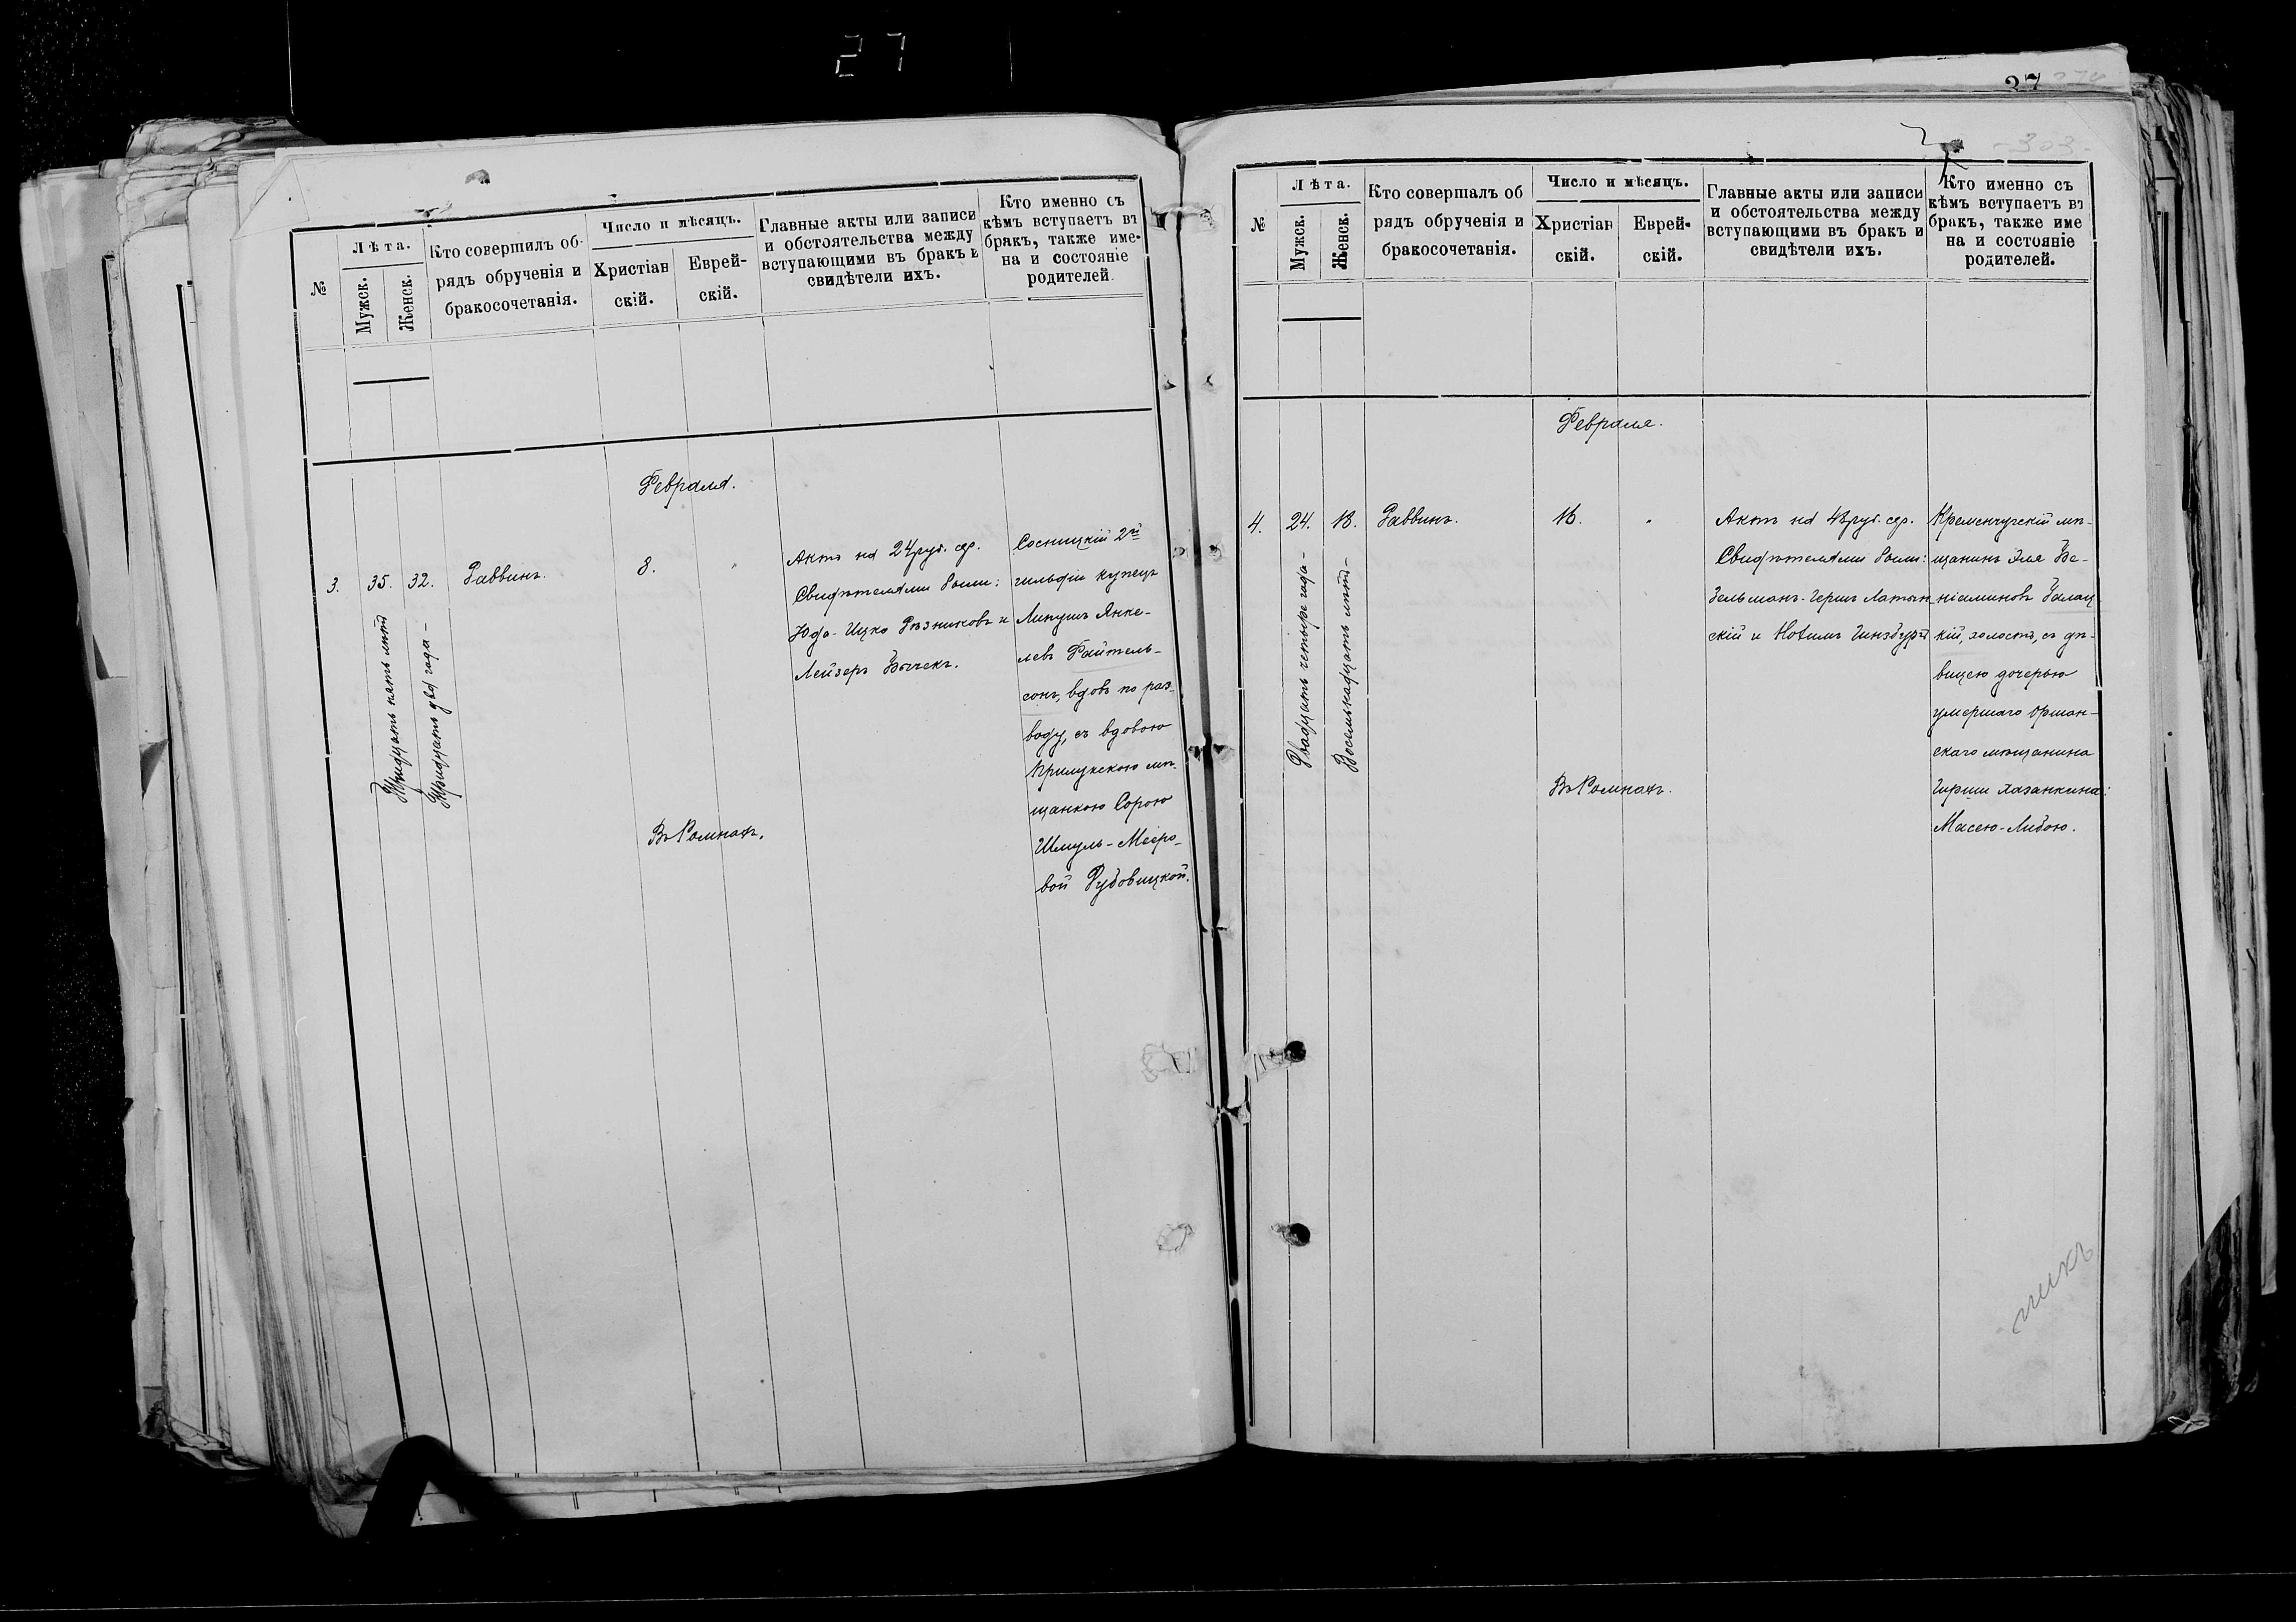 27
№
Лѣта.
Мужск.
Женск.
Кто совершилъ об-
рядъ обрученія и
бракосочетанія.
Число и мѣсяцъ.
Христіан
скій.
Еврей-
скій.
Главные акты или записи
и обстоятельства между
вступающими въ бракъ и
свидѣтели ихъ.
Кто именно съ
кѣмъ вступаетъ въ
бракъ, также име-
на и состояніе
родителей.
Февраля.
3.
35.
Тридцать пять лѣтъ
32.
Тридцать два года –
Раввинъ.
8.
Въ Ромнахъ.
Актъ на 24 руб. сер.
Свидѣтелями были:
Юда-Ицко Рѣзниковъ и
Лейзеръ Бычекъ.
Сосницкій 2й
гильдіи купецъ
Липушъ Янке-
левъ Файтель-
сонъ, вдовъ по раз-
воду, съ вдовою
Прилукскою мѣ-
щанкою Сорою
Шмуль-Мееро-
вой Дубовицкой.
37
303
№
Лѣта.
Мужск.
Женск.
Кто совершалъ об
рядъ обрученія и
бракосочетанія.
Число и мѣсяцъ.
Христіан
скій.
Еврей-
скій.
Главные акты или записи
и обстоятельства между
вступающими въ бракъ и
свидѣтели ихъ.
Кто именно съ
кѣмъ вступаетъ въ
бракъ, также име
на и состояніе
родителей.
Февраля.
4.
24.
Двадцать четыре года –
18.
Восемьнадцать лѣтъ –
Раввинъ.
16.
Въ Ромнахъ.
Актъ на 48 руб. сер.
Свидѣтелями были:
Зельманъ-Гершъ Латын
скій и Нотимъ Гинзбургъ
Кременчугскій мѣ-
щанинъ Эля Бе-
ніаминовъ Галац
кій, холостъ, съ дѣ-
вицею дочерью
умершаго Оршан-
скаго мѣщанина
Гирши Хазанкина:
Масею-Либою.